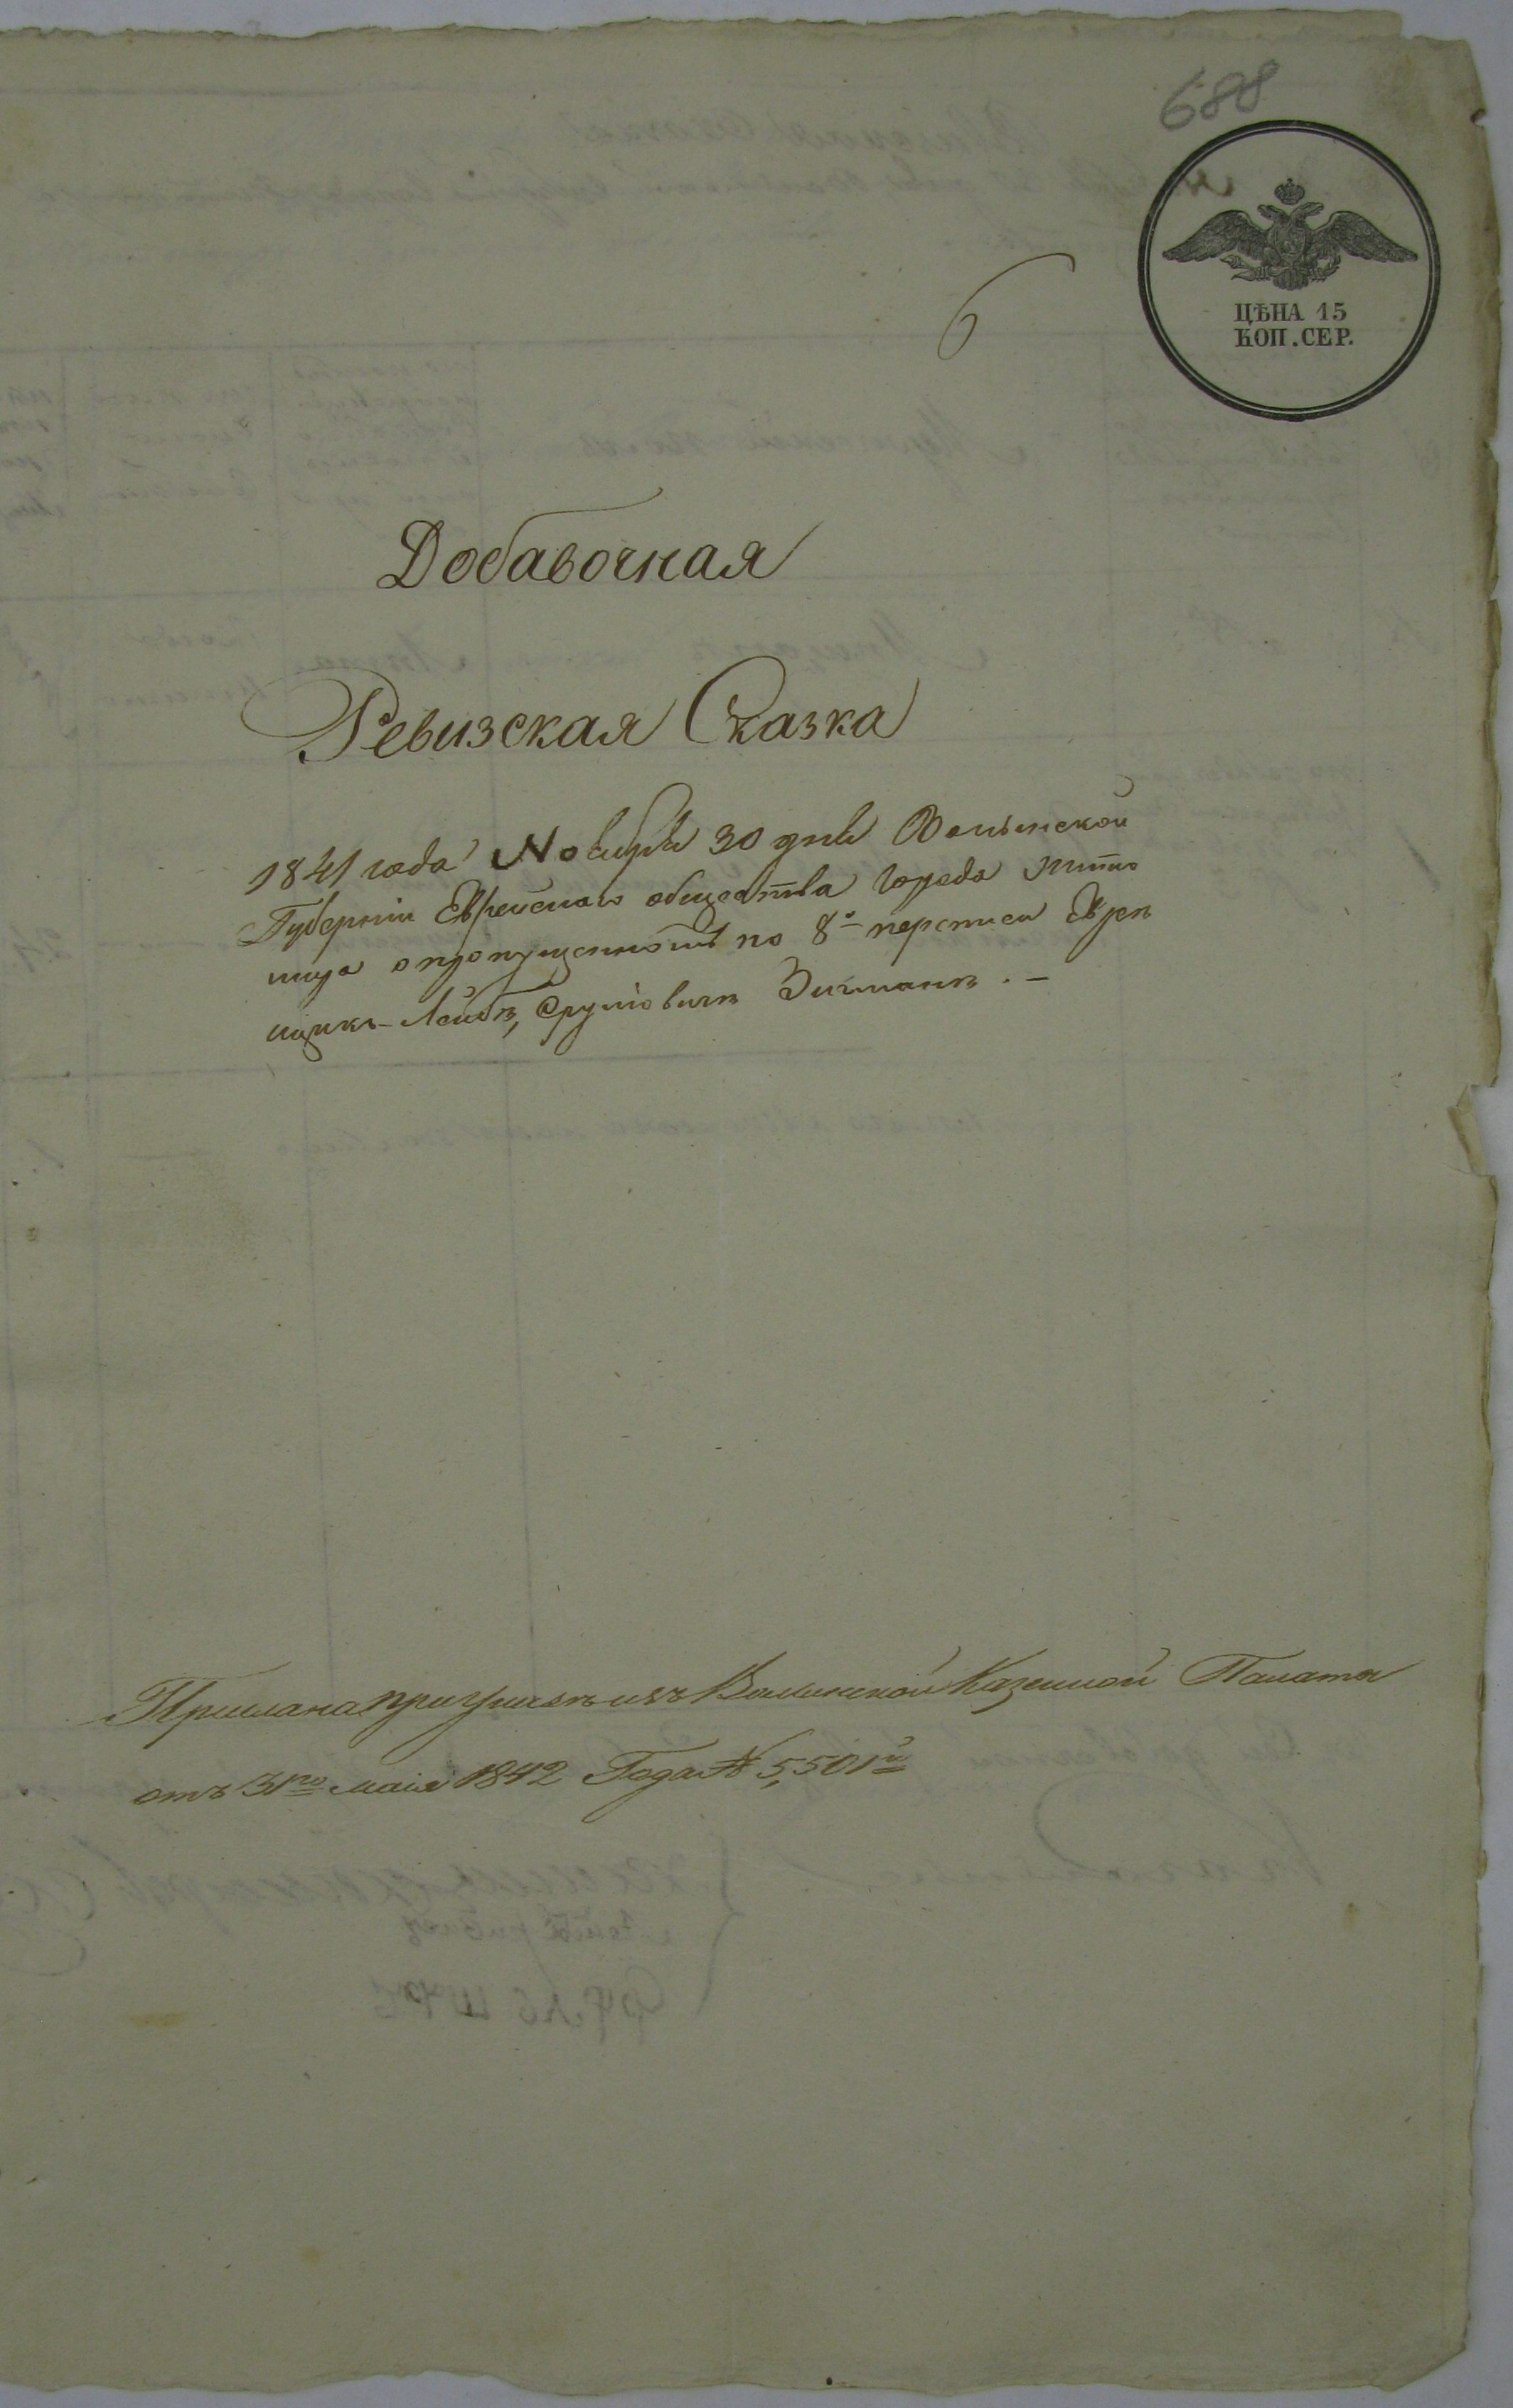 688
ЦѢНА 15
КОП. СЕР.
6
Добавочная
Ревизская Сказка
1841 года Ноября 30 дня Волынской
Губернiи Еврейскаго общества города Жито
мира о пропущенномъ по 8й переписи Евреѣ
Ицикъ-Лейбѣ, Сруліовичѣ Зигманѣ. -
Прислана при Указѣ изъ Волынской Казенной Палаты
отъ 31го маія 1842 Года № 5,501й